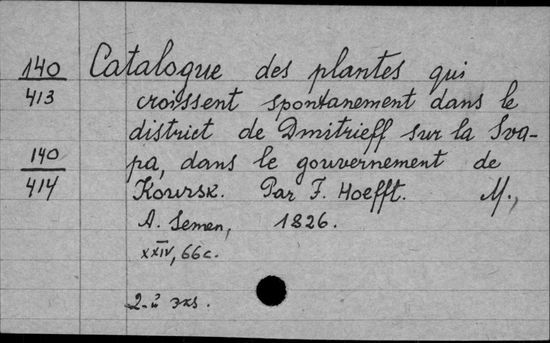 140
413
140
414
Catalogue des plantes qui
croissent spontanement dans le
district de Dmitrieff sur la Sva-
pa, dans le gouvernement de
Koursk. Par F. Hoefft. M.,
A. Semen, 1826.
XXIV, 66 c.
2-й экз.